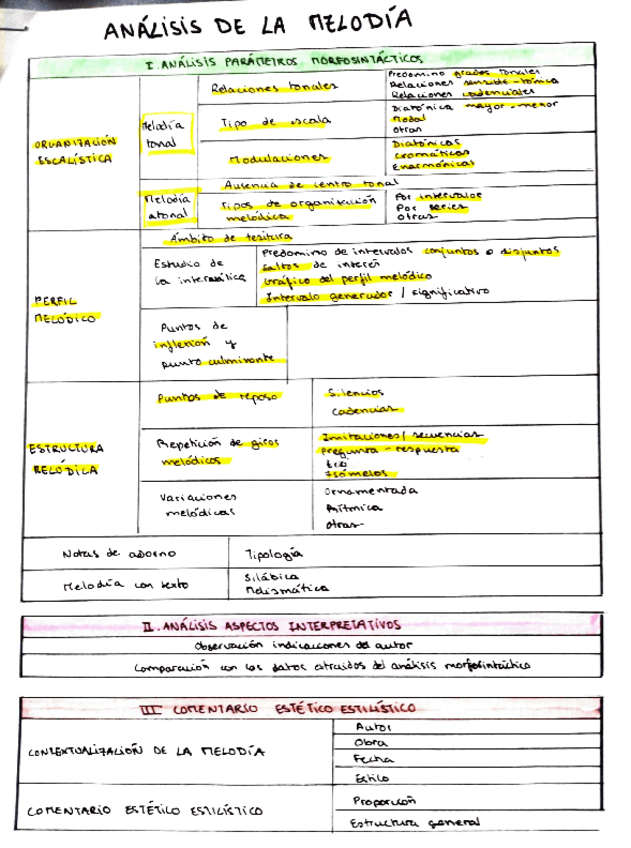 ANÁLISIS DE LA MELODÍA
I. ANÁLISIS PARÁMETROS MORFOSINTÁCTICOS
ORGANIZACIÓN
ESCALÍSTICA
Melodía
tonal
Relaciones tonales
Predomino grados tonales
Relaciones sensible-tónica
Relaciones cadenciales
Tipo de escala
Diatónica mayor-menor
Modal
Otras
Modulaciones
Diatónicas
Cromáticas
Enarmónicas
Melodía
atonal
Ausencia de centro tonal
Tipos de organización
melódica
Por intervalos
Por series
Otras
PERFIL
MELÓDICO
Ámbito de tesitura
Estudio de
la interválica
Predomino de intervalos conjuntos o disjuntos
Saltos de interés
Gráfico del perfil melódico
Intervalo generador / significativo
Puntos de
inflexión y
punto culminante
ESTRUCTURA
MELÓDICA
Puntos de reposo
Silencios
Cadencias
Repetición de giros
melódicos
Imitaciones / secuencias
Pregunta - respuesta
Eco
Isómelos
Variaciones
melódicas
Ornamentada
Rítmica
Otras
Notas de adorno
Tipología
Melodía con texto
Silábica
Melismática
II. ANÁLISIS ASPECTOS INTERPRETATIVOS
Observación indicaciones del autor
Comparación con los datos extraídos del análisis morfosintáctico
III COMENTARIO ESTÉTICO ESTILÍSTICO
CONTEXTUALIZACIÓN DE LA MELODÍA
Autor
Obra
Fecha
Estilo
COMENTARIO ESTÉTICO ESTILÍSTICO
Proporción
Estructura general